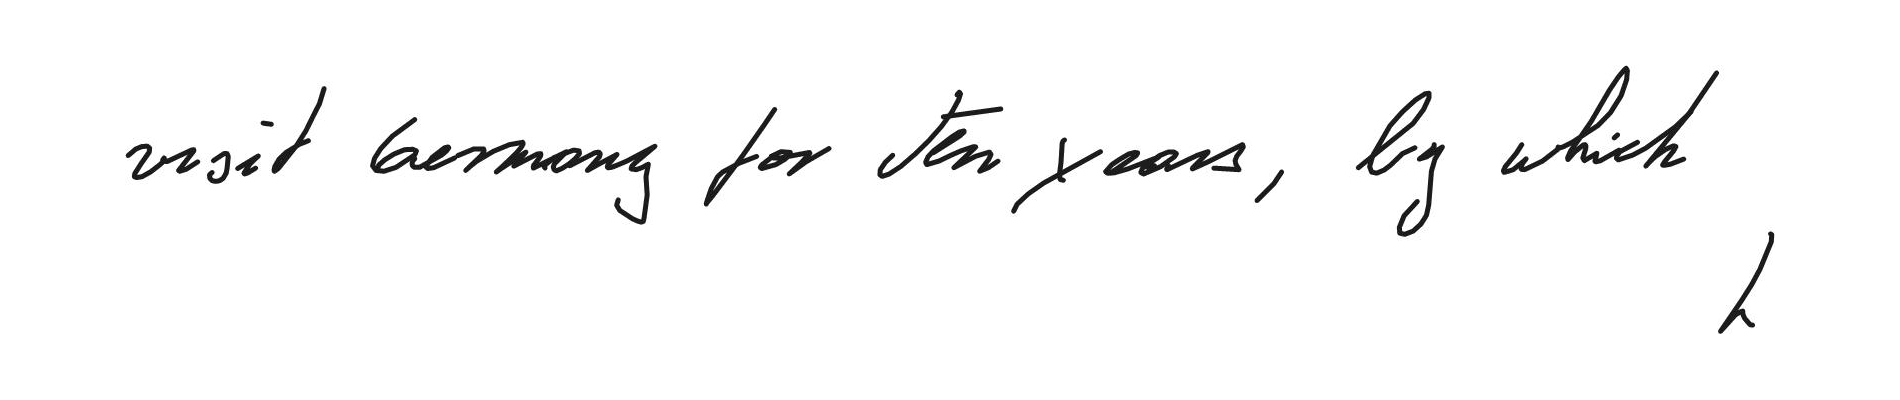 visit Germany for ten years, by which
h